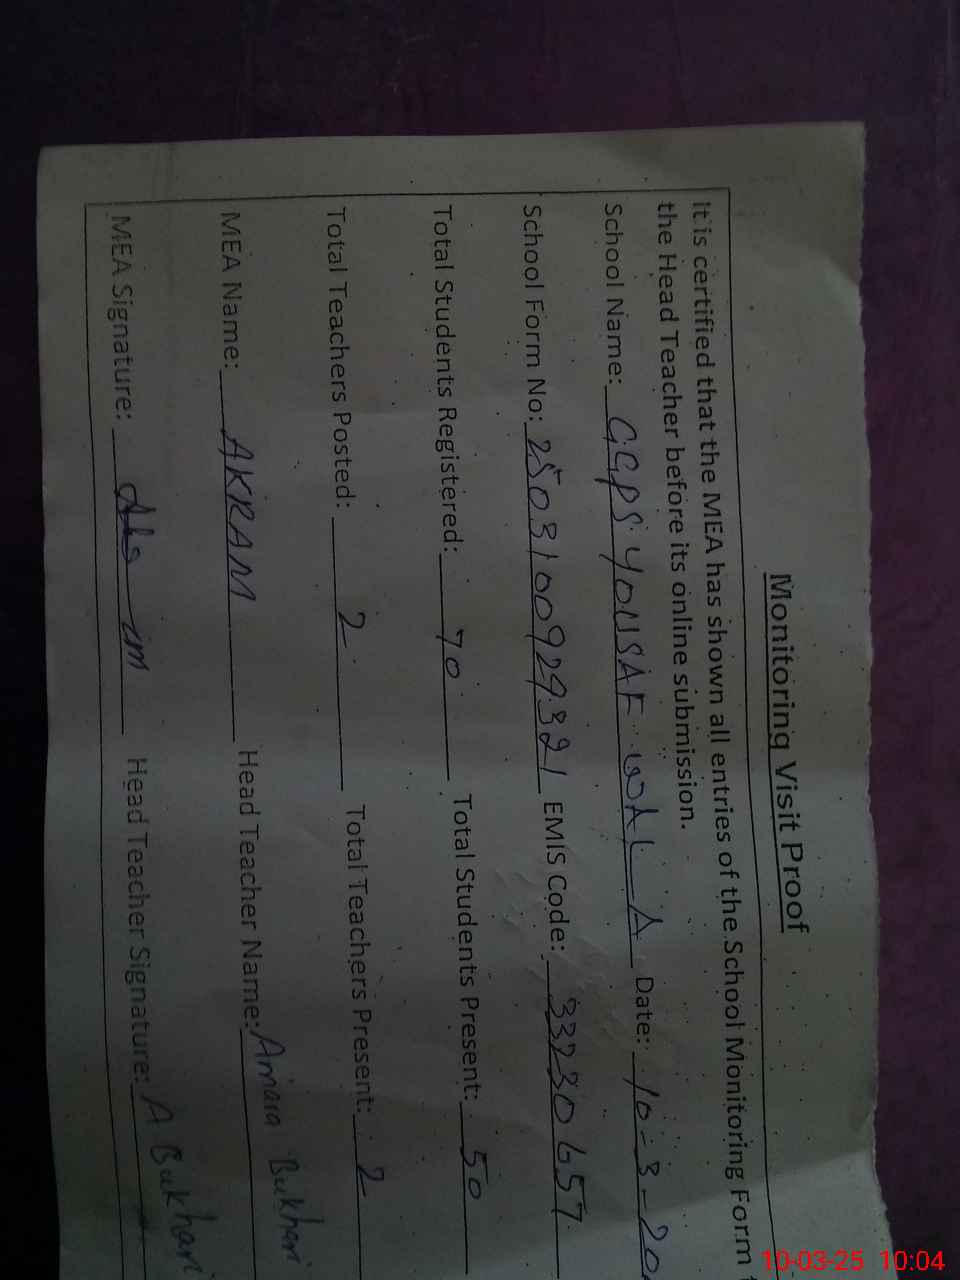 Monitoring Visit Proof
It is certified that the MEA has shown all entries of the School Monitoring Form
the Head Teacher before its online submission.
School Name: GGPS YOUSAF WALA Date: 10-3-20
School Form No: 2503100929321 EMIS Code: 33230657
Total Students Registered: 70 Total Students Present: 50
Total Teachers Posted: 2 Total Teachers Present: 2
MEA Name: AKRAM Head Teacher Name: Amara Bukhari
MEA Signature: Head Teacher Signature: A Bukhari
10-03-25 10:04